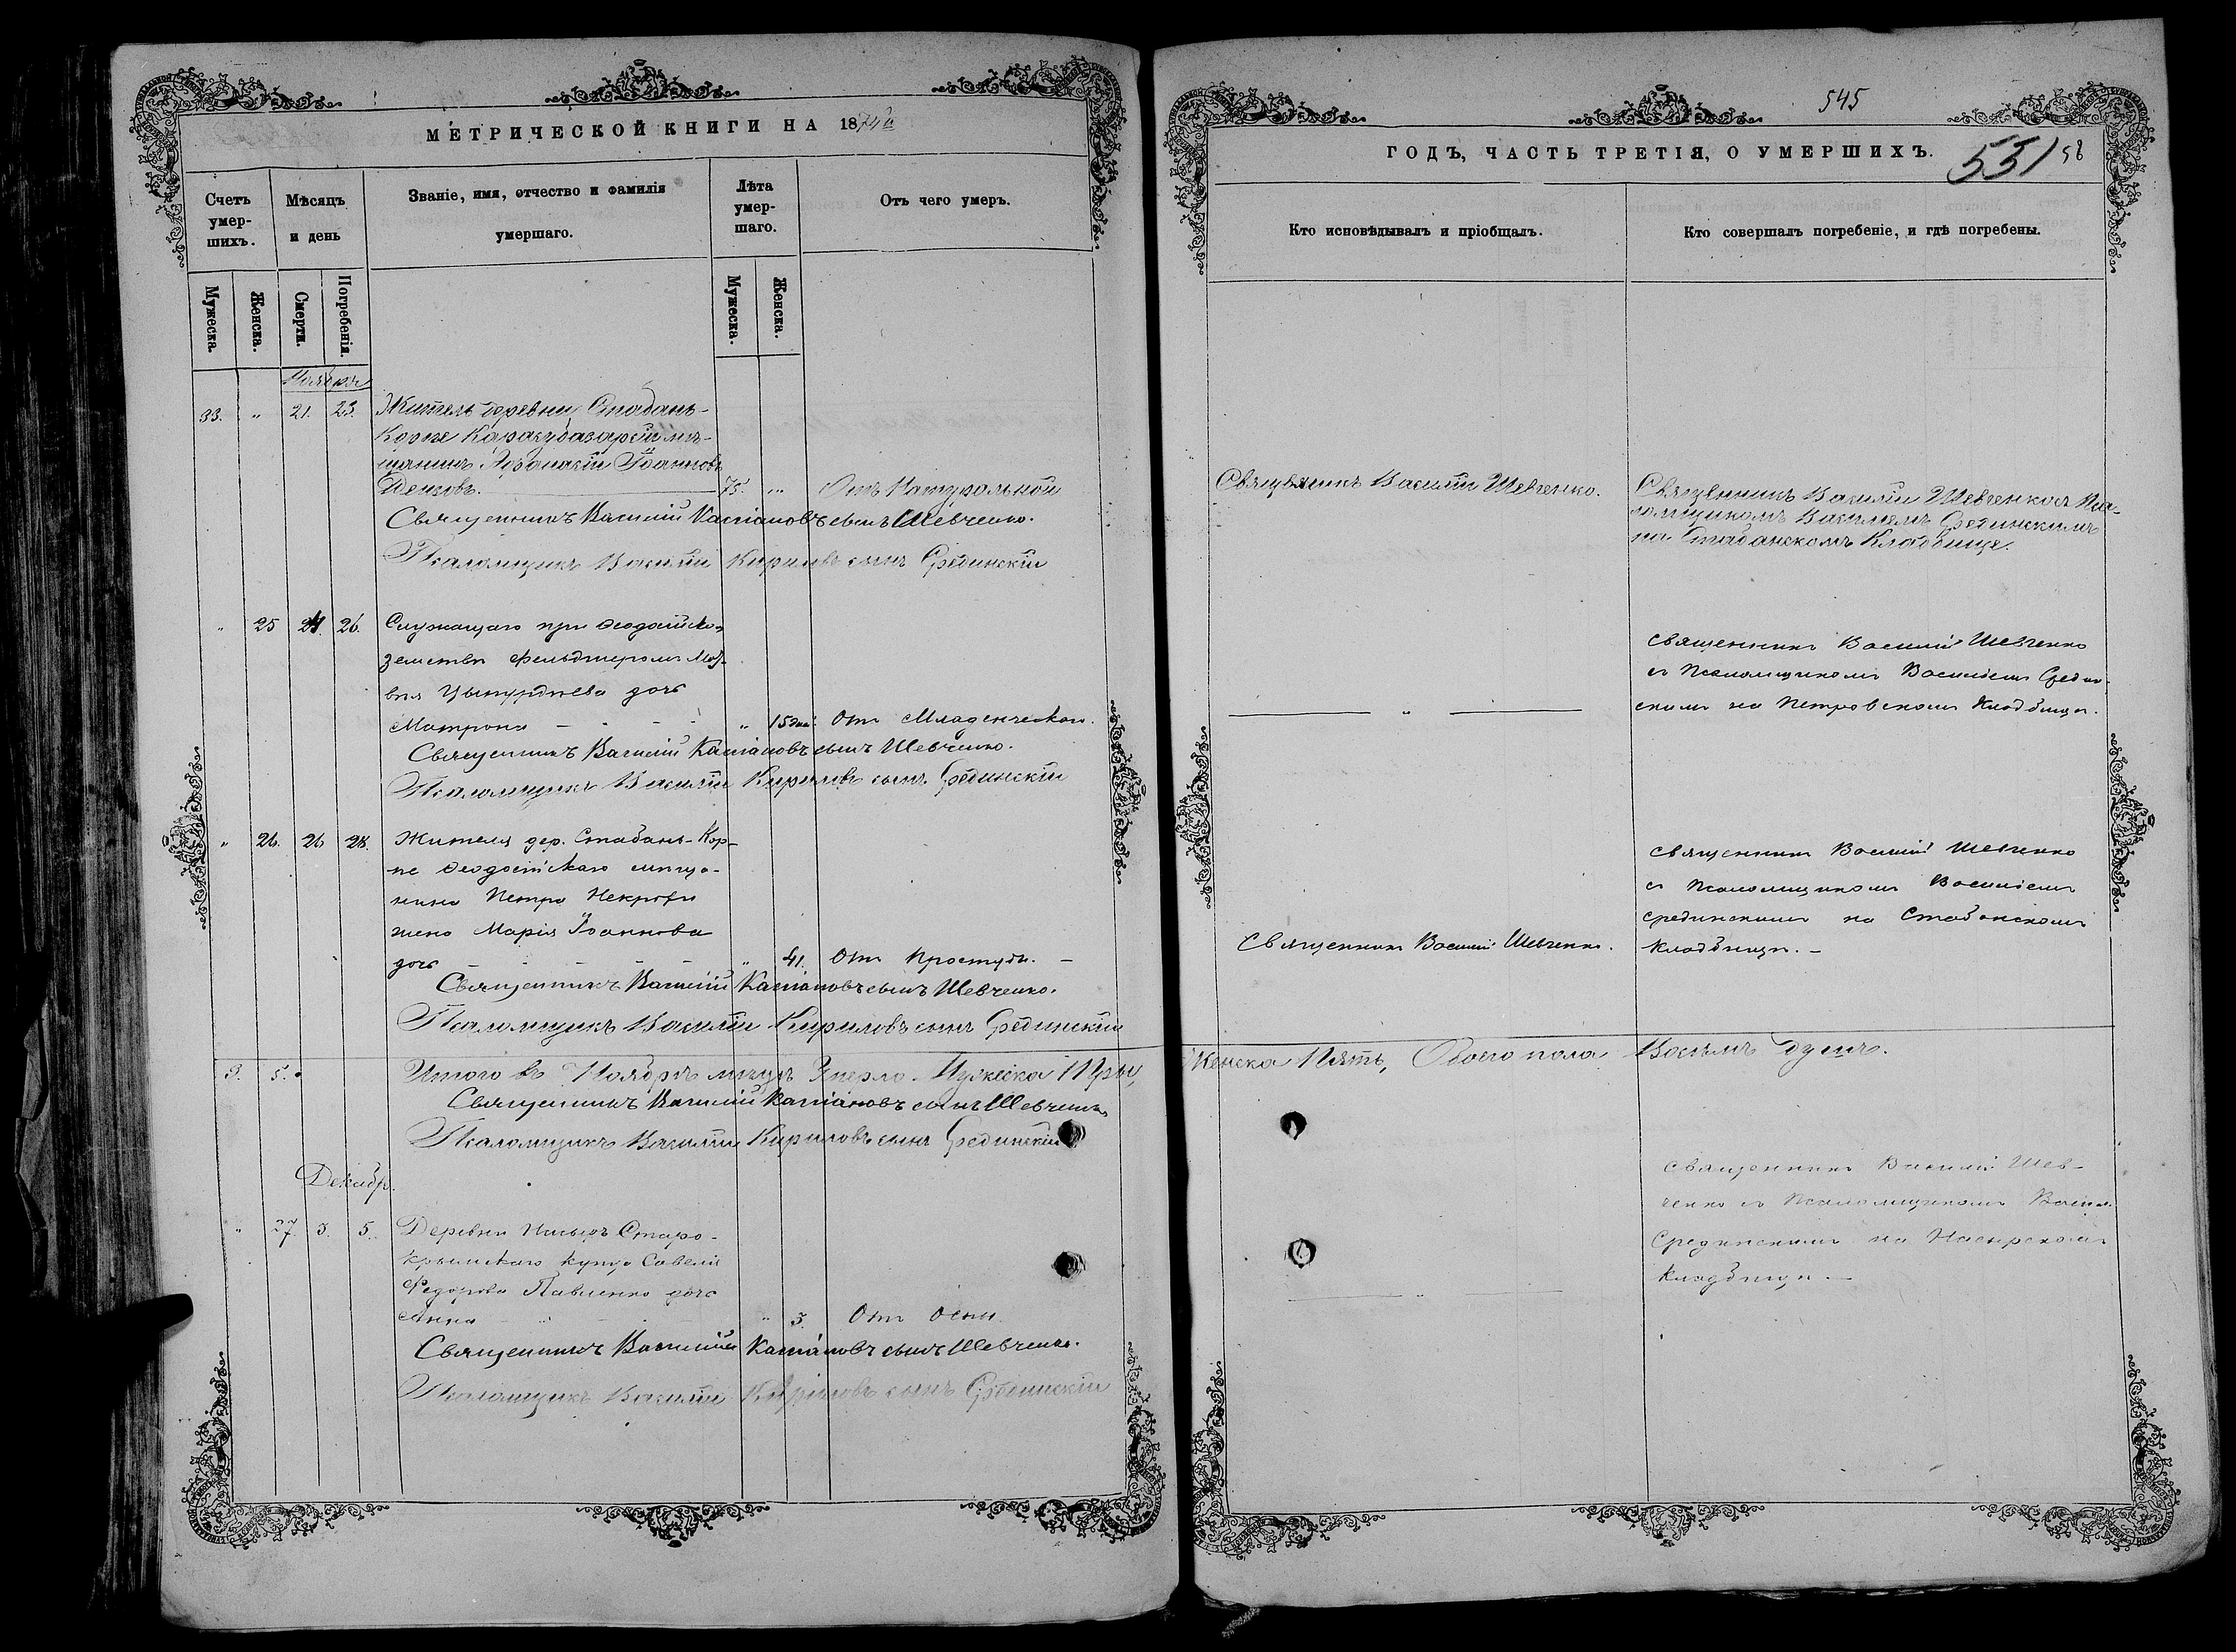 МЕТРИЧЕСКОЙ КНИГИ НА 1874й
Счетъ умер-шихъ.
Мѣсяцъ и день
Званіе, имя, отчество и фамилія умершаго.
Лѣта умер-шаго.
Отъ чего умеръ.
Мужеска.
Женска.
Смерти.
Погребенія.
Мужеска.
Женска.
Ноября
33. " 21. 23. Житель деревни Стабанъ-
Корпе Карасубазарскій мѣ-
щанинъ Іоанновъ
75. " Отъ Натуральной
Священникъ Василій Кассіановъ сынъ Шевченко.
Псаломщикъ Василій Кириловъ сынъ Срединскій
" 25 24. 26. Служащаго при Ѳеодосійско
земствѣ фельдшеромъ Мат-
вѣя дочь
Матрона " 15 дней. Отъ Младенческой.
Священникъ Василій Кассіановъ сынъ Шевченко.
Псаломщикъ Василій Кириловъ сынъ Срединскій
" 26. 26 28. Жителя дер. Стабанъ-Кор-
пе Ѳеодосійскаго мѣща-
нина Петра
жена Марія Іоаннова
дочь " 41. Отъ простуды.
Священникъ Василій Кассіановъ сынъ Шевченко.
Псаломщикъ Василій Кириловъ сынъ Срединскій
3. 5. Итого въ Ноябрѣ мѣсяцѣ Умерло. Мужеска Три,
Священникъ Василій Кассіановъ сынъ Шевченко
Псаломщикъ Василій Кириловъ сынъ Срединскій
Декабр.
" 27. 3. 5. Деревни Насыръ Старо-
крымскаго купца Савелія
Федорова Павленко дочь
Анна " 3. Отъ Оспы.
Священникъ Василій Кассіановъ сынъ Шевченко.
Псаломщикъ Василій Кириловъ сынъ Срединскій
545
ГОДЪ, ЧАСТЬ ТРЕТІЯ, О УМЕРШИХЪ.
551 58
Кто исповѣдывалъ и пріобщалъ.
Кто совершалъ погребеніе, и гдѣ погребены.
Священникъ Василій Шевченко.
Священникъ Василій Шевченко съ Пса-
ломщикомъ Василіемъ Срединскимъ
на Стабанскомъ Кладбище.
священникъ Василій Шевченко
съ Псаломщикомъ Василіемъ Средин-
скимъ на Петровскомъ Кладбищѣ.
Священникъ Василій Шевченко.
священникъ Василій Шевченко
съ Псаломщикомъ Василіемъ
срединскимъ на Стабанскомъ
кладбищѣ.
Женска Пять, Обоего пола Восемъ душъ.
священникъ Василій Шев-
ченко съ Псаломщикомъ Васил.
Срединскимъ на Насырскомъ
кладбищѣ.